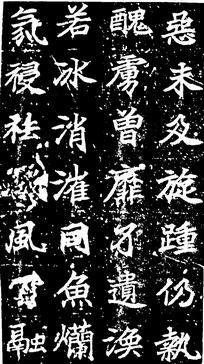 惡未及旋踵仍執
醜虜曾靡孑遺渙
若冰消漼同魚爛
氛祲風融